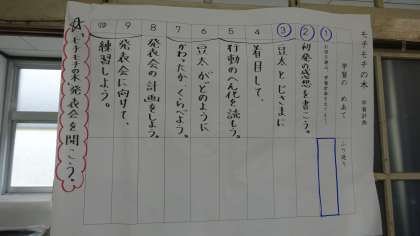 モチモチの木 学習計画
学習の めあて
ふり返り
①
② 初発の感想を書こう。
③ 豆太とじさまに
4 着目して、
5 行動のへん化を読もう。
6 豆太がどのように
7 かわったか、くらべよう。
8 発表会の計画をしよう。
9 発表会に向けて、
⑩ 練習しよう。
☆モチモチの木発表会を開こう。